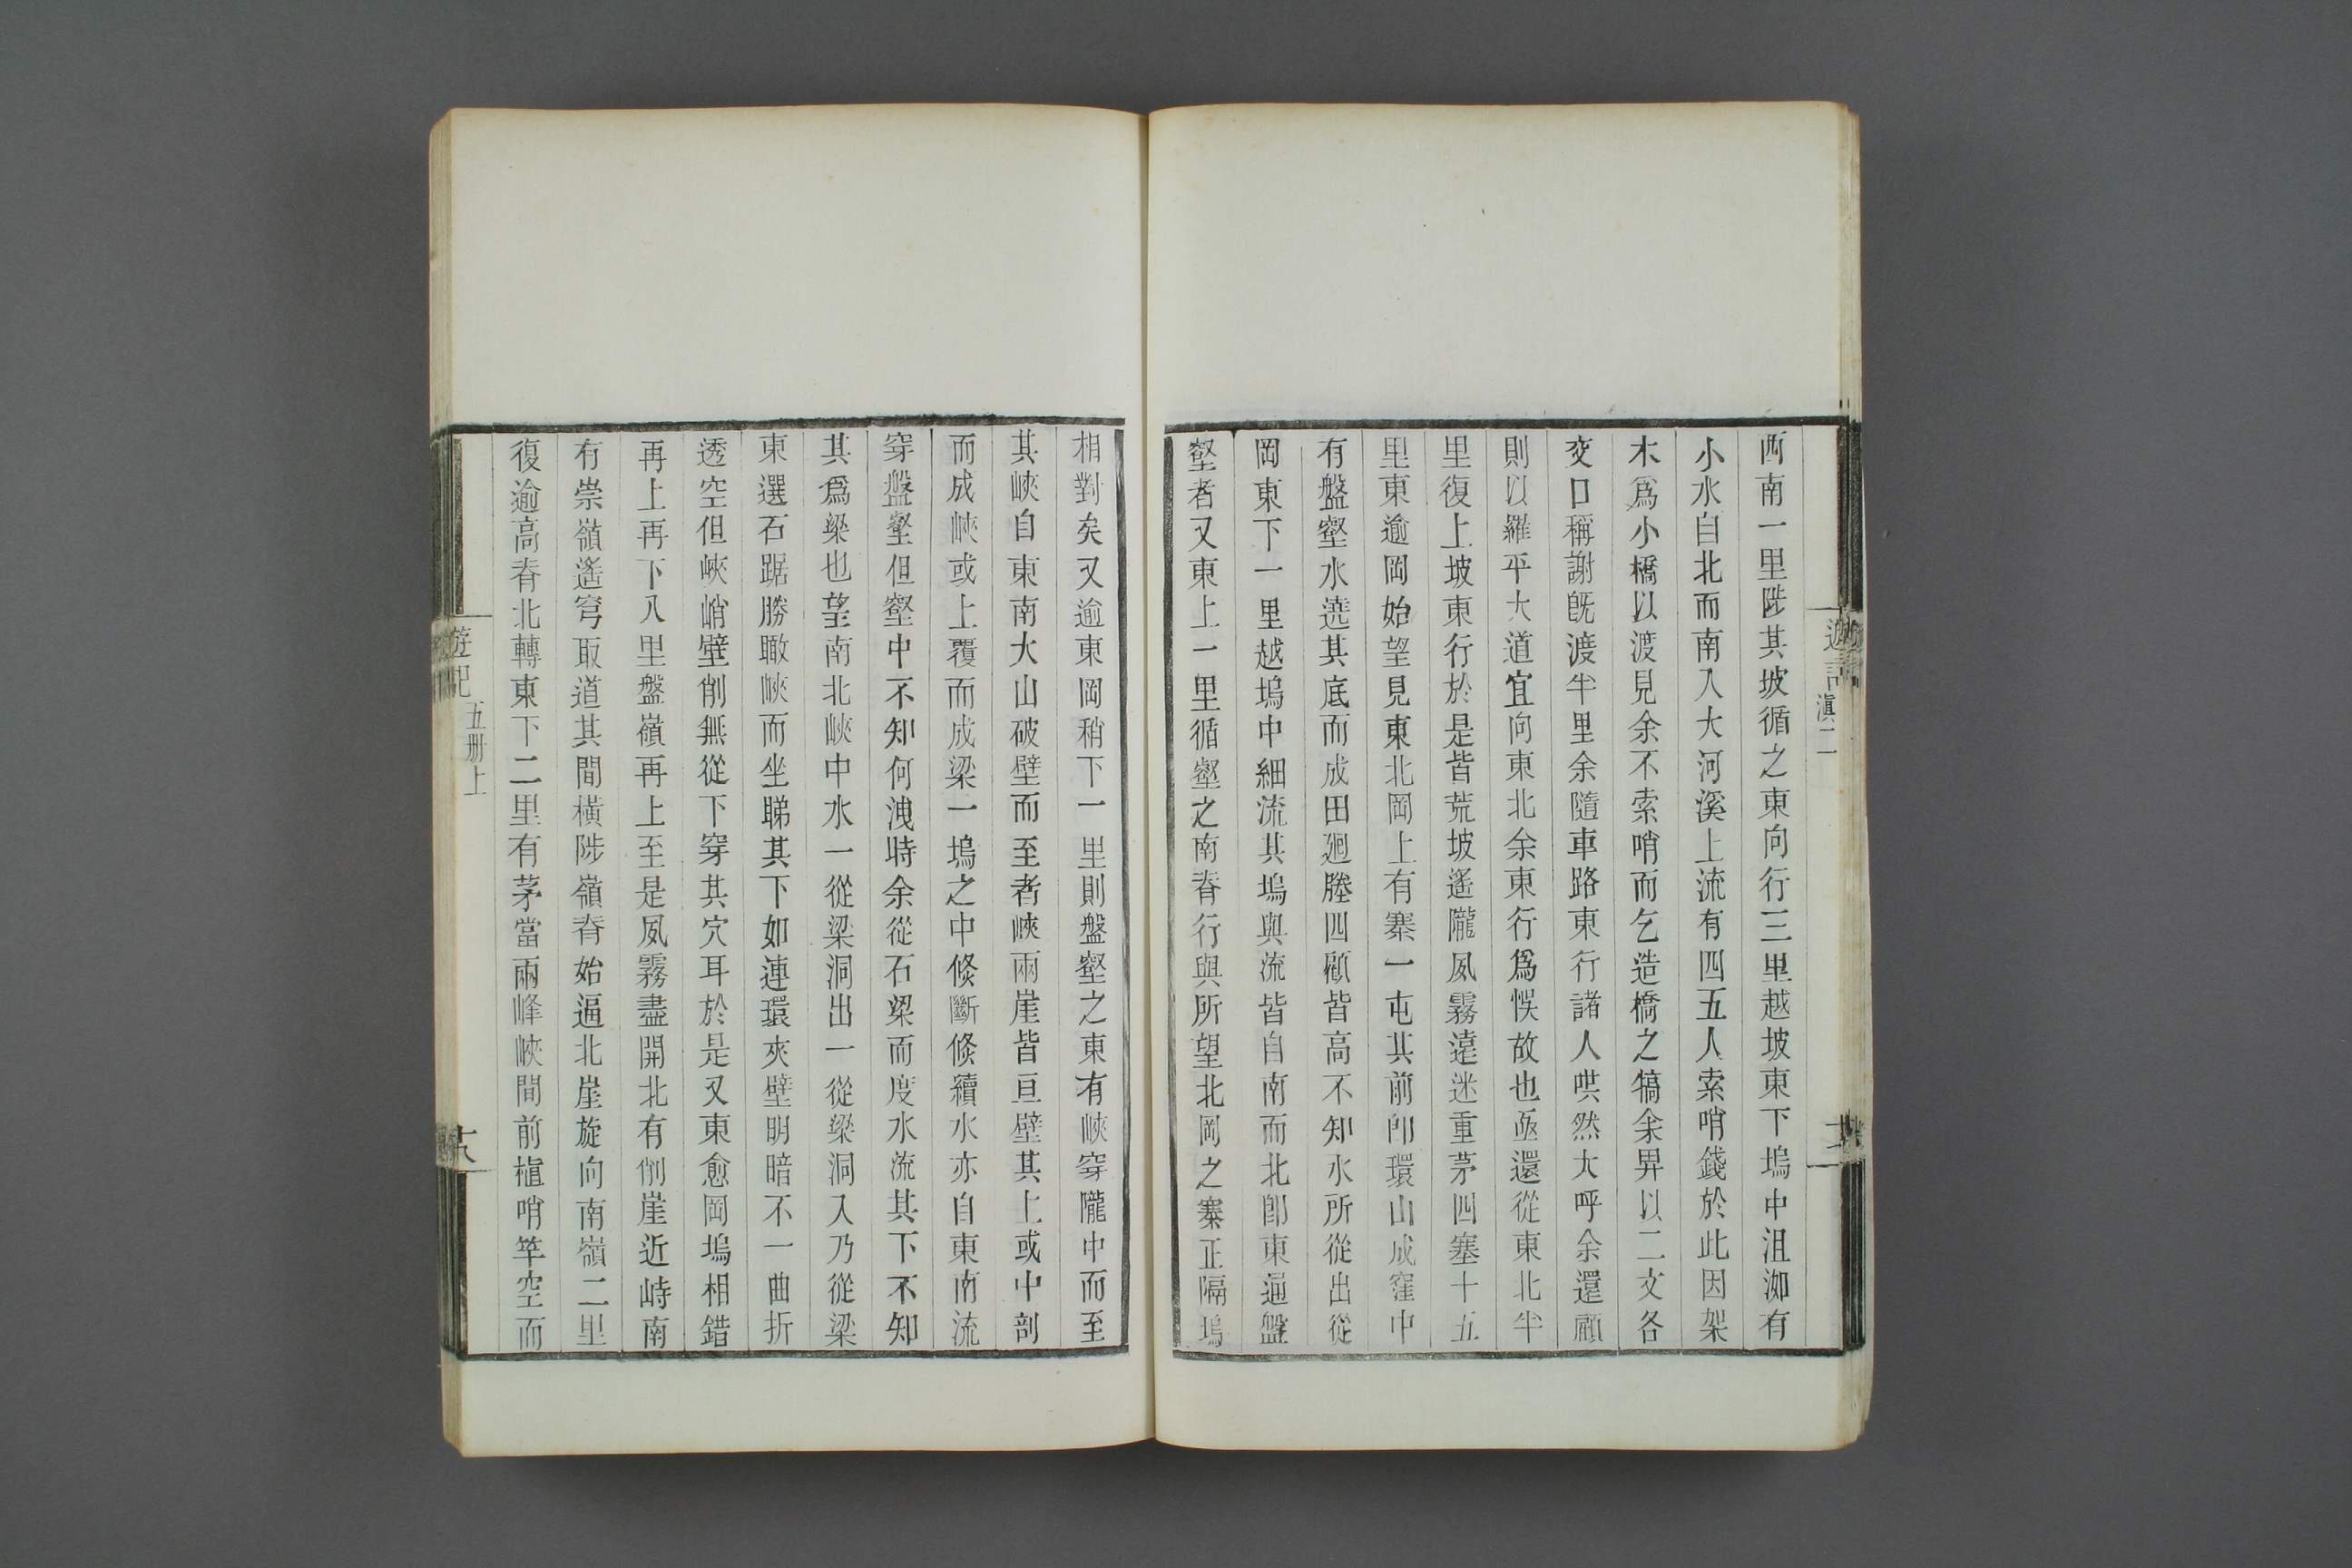 西南一里陟其坡循之東向行三里越坡東下塢中沮洳有
小水自北而南入大河溪上流有四五人索哨錢於此因架
木爲小橋以渡見余不索哨而乞造橋之犒余畀以二文各
交口稱謝既渡半里余隨車路東行諸人哄然大呼余還顧
則以羅平大道宜向東北余東行爲悞故也亟還從東北半
里復上坡東行於是皆荒坡遙隴夙霧遠迷重茅四塞十五
里東逾岡始望見東北岡上有寨一屯其前卽環山成窪中
有盤壑水遶其底而成田廻塍四顧皆高不知水所從出從
岡東下一里越塢中細流其塢與流皆自南而北卽東逼盤
壑者又東上一里循壑之南脊行與所望北岡之寨正隔塢
相對矣又逾東岡稍下一里則盤壑之東有峽穿隴中而至
其峽自東南大山破壁而至者峽兩崖皆亘壁其上或中剖
而成峽或上覆而成梁一塢之中倐斷倐續水亦自東南流
穿盤壑但壑中不知何洩時余從石梁而度水流其下不知
其爲梁也望南北峽中水一從梁洞出一從梁洞入乃從梁
東選石踞勝瞰峽而坐睇其下如連環夾壁明暗不一曲折
透空但峽峭壁削無從下穿其穴耳於是又東愈岡塢相錯
再上再下八里盤嶺再上至是夙霧盡開北有削崖近峙南
有崇嶺遙穹取道其間橫陟嶺脊始逼北崖旋向南嶺二里
復逾高脊北轉東下二里有茅當兩峰峽間前植哨竿空而
遊記
滇二
遊記
五册上
十八